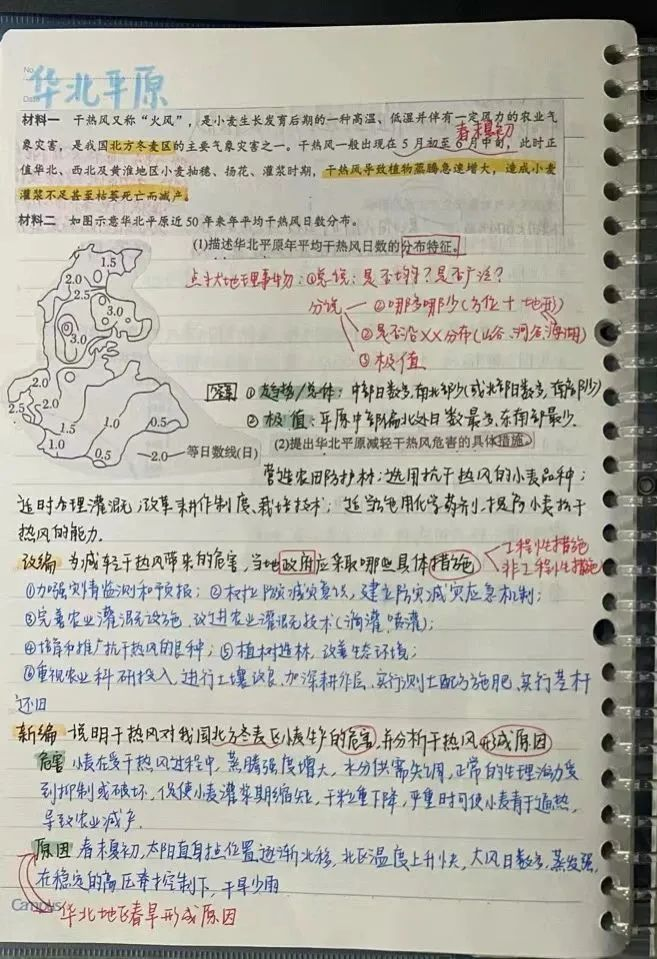 No.
Date
华北平原
材料一 干热风又称“火风”，是小麦生长发育后期的一种高温、低湿并伴有一定风力的农业气
象灾害，是我国北方冬麦区的主要气象灾害之一。干热风一般出现在5月初至6月中旬，此时正
春末夏初
值华北、西北及黄淮地区小麦抽穗、扬花、灌浆时期，干热风导致植物蒸腾急速增大，造成小麦
灌浆不足甚至枯萎死亡而减产。
材料二 如图示意华北平原近50年来年平均干热风日数分布。
(1)描述华北平原年平均干热风日数的分布特征。
点状地理事物：①总说：是否均匀？是否广泛？
分说
②哪多哪少(方位+地形)
②是否沿XX分布(山谷、河谷、海湖)
③极值
1.5
2.0
2.5
3.0
3.0
2.0
2.5
2.0
1.5
1.0
1.0
0.5
0.5
2.0 等日数线(日)
答案 ①趋势/总体：中部日数多，南北部少(或北部日数多，南部少)
②极值：平原中部偏北处日数最多，东南部最少。
(2)提出华北平原减轻干热风危害的具体措施。
营造农田防护林；选用抗干热风的小麦品种；
适时合理灌溉；改革耕作制度、栽培技术；适当使用化学药剂，提高小麦抗干
热风的能力。
改编 为减轻干热风带来的危害，当地政府应采取哪些具体措施
工程性措施
非工程性措施
①加强灾情监测和预报；②制定防灾减灾预案，建立防灾减灾应急机制；
③完善农业灌溉设施，改进农业灌溉技术(滴灌、喷灌)；
④培育和推广抗干热风的良种；⑤植树造林，改善生态环境；
⑥重视农业科研投入，进行土壤改良，加深耕作层，实行测土配方施肥，实行秸秆
还田
新编 说明干热风对我国北方冬麦区小麦生产的危害，并分析干热风形成原因
危害 小麦在受干热风过程中，蒸腾强度增大，水分供需失调，正常的生理活动受
到抑制或破坏，促使小麦灌浆期缩短，千粒重下降，严重时可使小麦青干逼熟，
导致农业减产。
原因 春末夏初，太阳直射点位置逐渐北移，北区温度上升快，大风日数多，蒸发强，
在稳定的高压脊控制下，干旱少雨
Campus
华北地区春旱形成原因